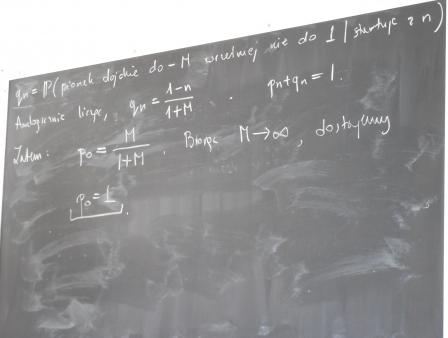 qₙ = ℙ(pionek dojdzie do -M wcześniej niż do 1 | startując z n)
Analogicznie licząc, qₙ = (1-n)/(1+M). pₙ+qₙ = 1.
Zatem: p₀ = M/(1+M). Biorąc M→∞, dostajemy
p₀ = 1.